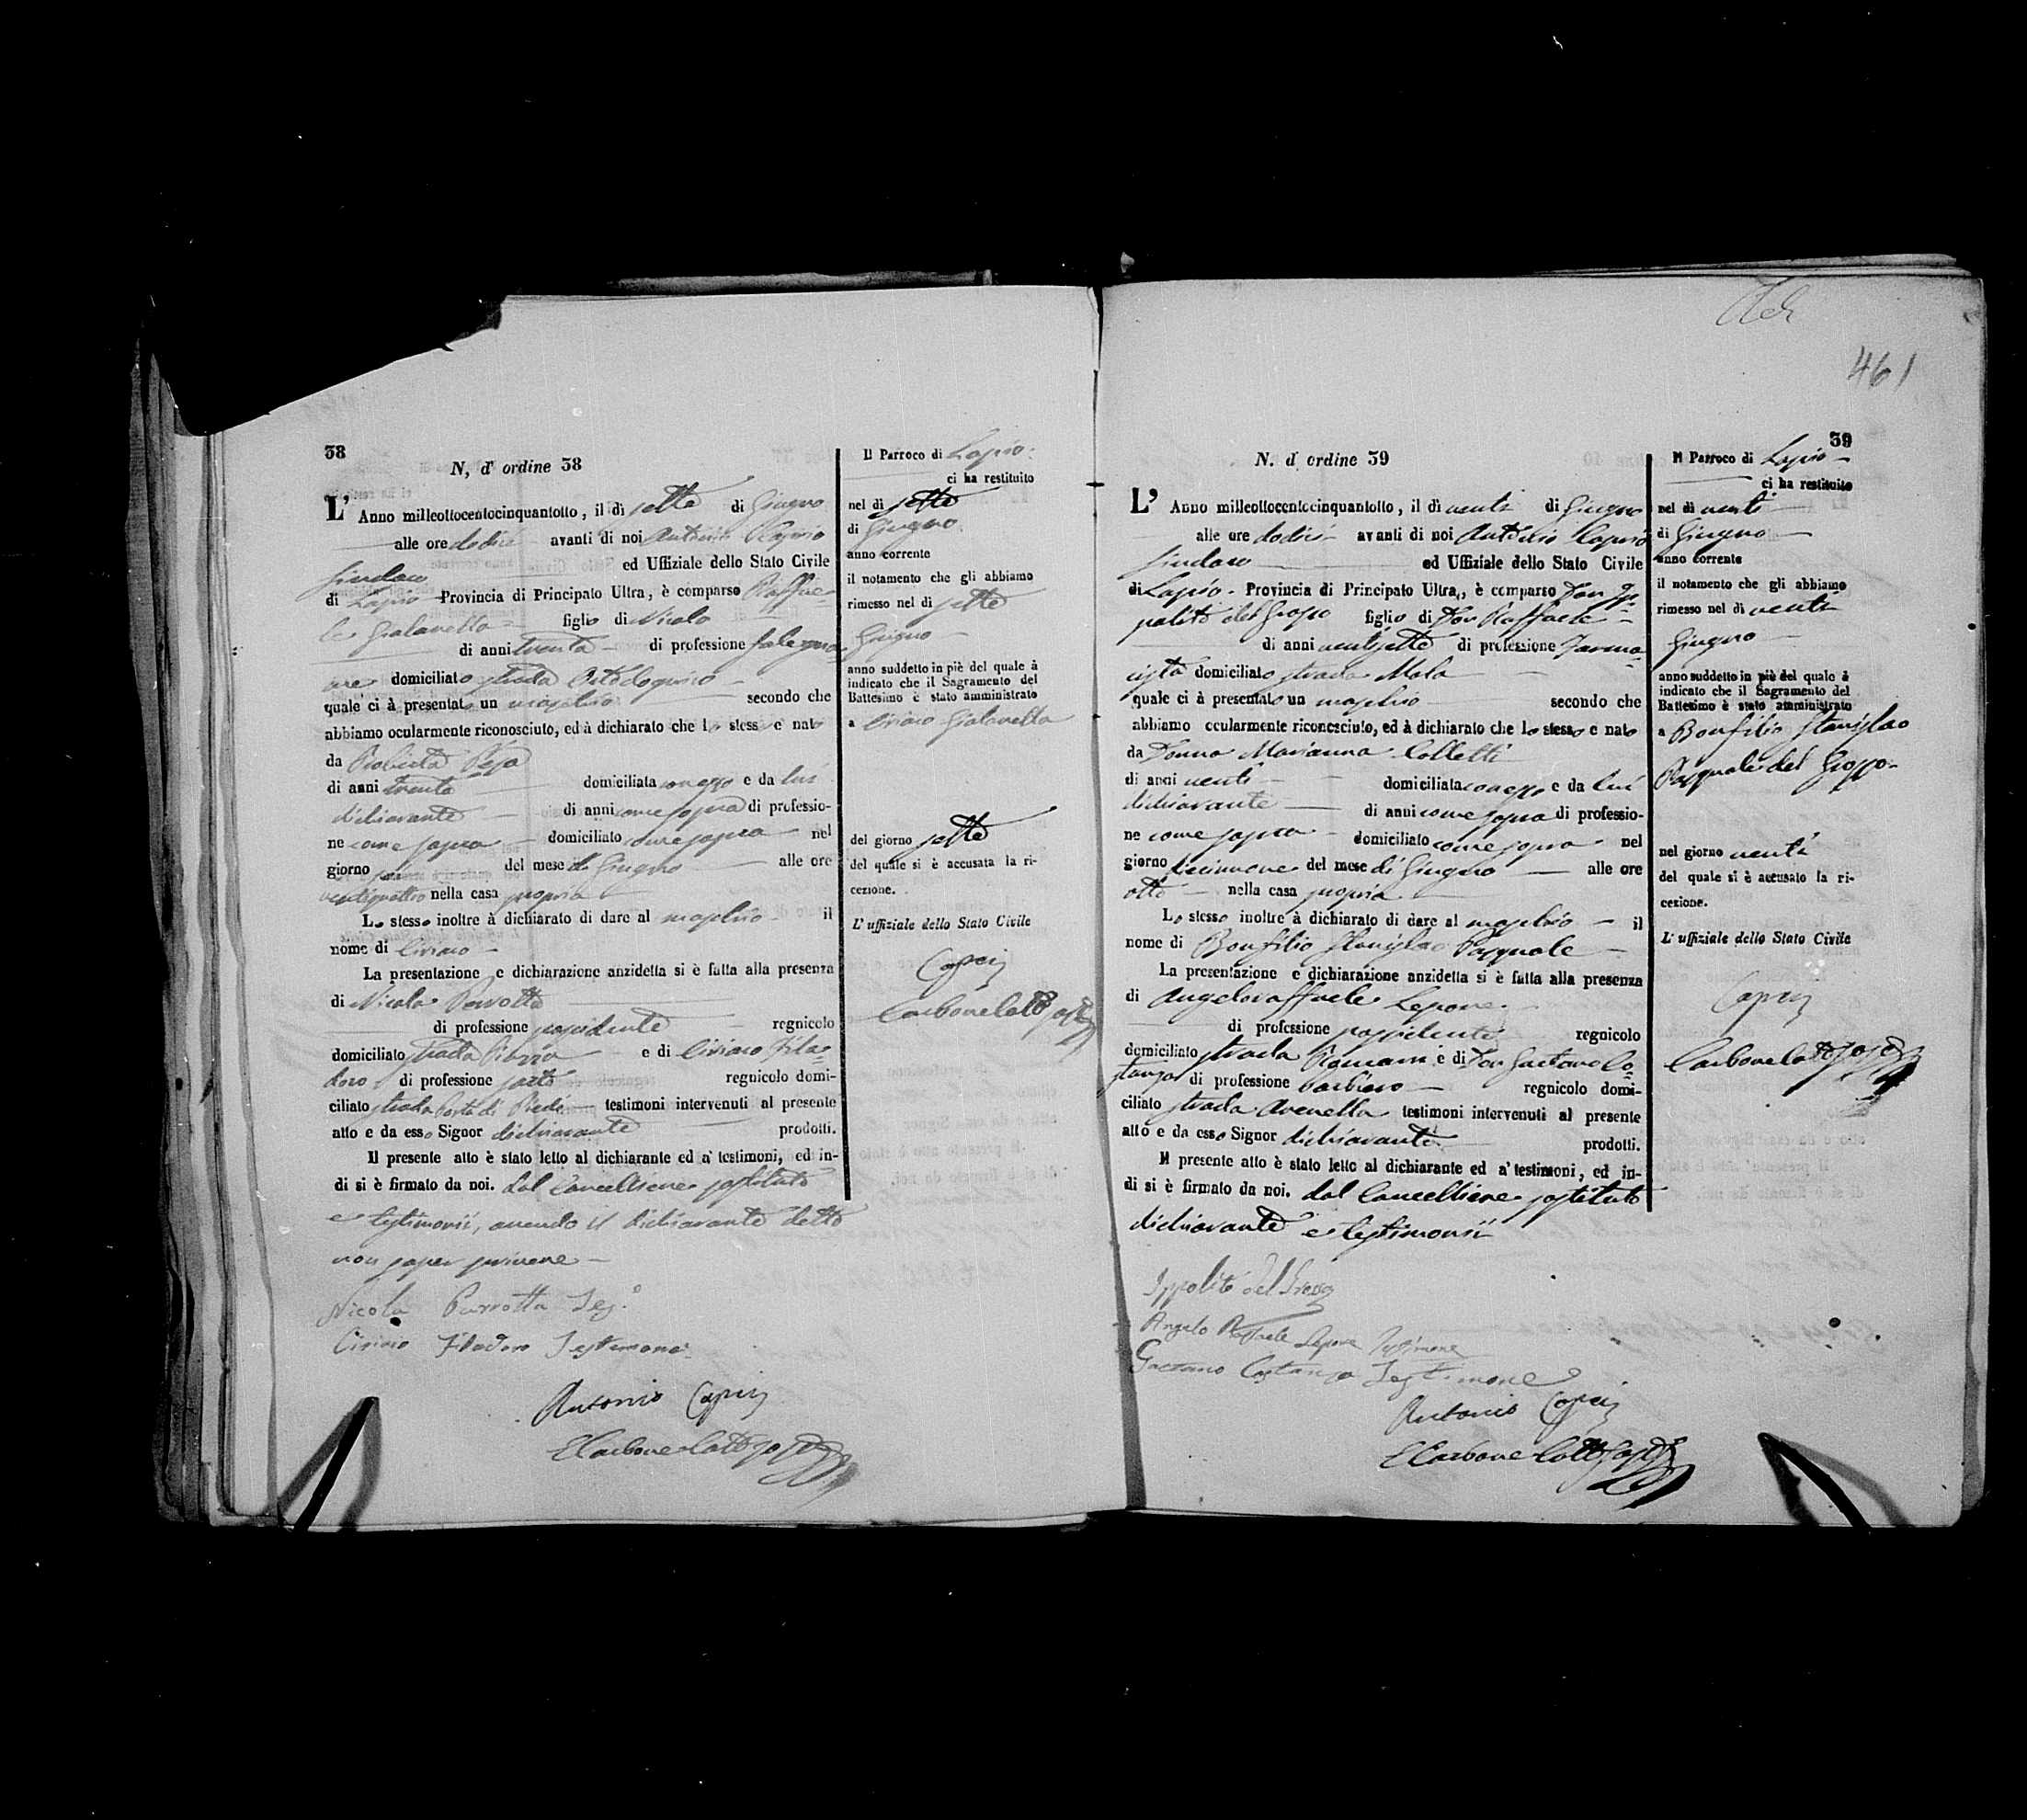 38
N, d' ordine 38
L' Anno milleottocentocinquantotto, il di sette di Giugno
alle ore dodici avanti di noi Antonio
Sindaco ed Uffiziale dello Stato Civile
di Lapio Provincia di Principato Ultra, è comparso Raffae-
le Gialanella figlio di Nicola
di anni trenta di professione falegna-
me domiciliato strada
quale ci à presentato un maschio secondo che
abbiamo ocularmente riconosciuto, ed à dichiarato che lo stesso e nato
da
di anni trenta domiciliata con esso e da lui
dichiarante di anni come sopra di professio-
ne come sopra domiciliato come sopra nel
giorno sei del mese di Giugno alle ore
ventiquattro nella casa propria
Lo stesso inoltre à dichiarato di dare al maschio il
nome di Ciriaco
La presentazione e dichiarazione anzidetta si è fatta alla presenza
di Nicola Perrotta
di professione possidente regnicolo
domiciliato strada Piazza e di Ciriaco Fila-
doro di professione sarto regnicolo domi-
ciliato strada Porta di Piedi testimoni intervenuti al presente
atto e da esso Signor dichiarante prodotti.
Il presente atto è stato letto al dichiarante ed a' testimoni, ed in-
di si è firmato da noi. dal Cancelliere sostituto
e testimonii, avendo il dichiarante detto
non saper scrivere
Nicola Perrotta Tes.º
Ciriaco Filadoro Testimone
Antonio Caprio
Carbone
Il Parroco di Lapio
ci ha restituito
nel di sette
di Giugno
anno corrente
il notamento che gli abbiamo
rimesso nel di sette
Giugno
anno suddetto in piè del quale à
indicato che il Sagramento del
Battesimo è stato amministrato
a Ciriaco Gialanella
del giorno sette
del quale si è accusata la ri-
cezione.
L' uffiziale dello Stato Civile
Caprio
Carbone
461
39
N. d' ordine 39
L' Anno milleottocentocinquantotto, il di venti di Giugno
alle ore dodici avanti di noi Antonio Caprio
Sindaco ed Uffiziale dello Stato Civile
di Lapio Provincia di Principato Ultra, è comparso Don Ip-
polito del Grosso figlio di Don Raffaele
di anni ventisette di professione Farma-
cista domiciliato strada Mola
quale ci à presentato un maschio secondo che
abbiamo ocularmente riconosciuto, ed à dichiarato che lo stesso e nato
da Donna Marianna Colletti
di anni venti domiciliata con esso e da lui
dichiarante di anni come sopra di professio-
ne come sopra domiciliato come sopra nel
giorno diecinnove del mese di Giugno alle ore
otto nella casa propria
Lo stesso inoltre à dichiarato di dare al maschio il
nome di Bonfilio Stanislao Pasquale
La presentazione e dichiarazione anzidetta si è fatta alla presenza
di Angeloraffaele Lepore
di professione possidente regnicolo
domiciliato strada e di Don Gaetano Co-
stanza di professione barbiero regnicolo domi-
ciliato strada Avenella testimoni intervenuti al presente
atto e da esso Signor dichiarante prodotti.
Il presente atto è stato letto al dichiarante ed a' testimoni, ed in-
di si è firmato da noi. dal Cancelliere sostituto
dichiarante e testimonii
Ippolito del Grosso
Angelo Raffaele Lepore Testimone
Gaetano Costanza Testimone
Antonio Caprio
Carbone
Il Parroco di Lapio
ci ha restituito
nel di venti
di Giugno
anno corrente
il notamento che gli abbiamo
rimesso nel di venti
Giugno
anno suddetto in piè del quale à
indicato che il Sagramento del
Battesimo è stato amministrato
a Bonfilio Stanislao
Pasquale del Grosso
nel giorno venti
del quale si è accusato la ri-
cezione.
L' uffiziale dello Stato Civile
Caprio
Carbone